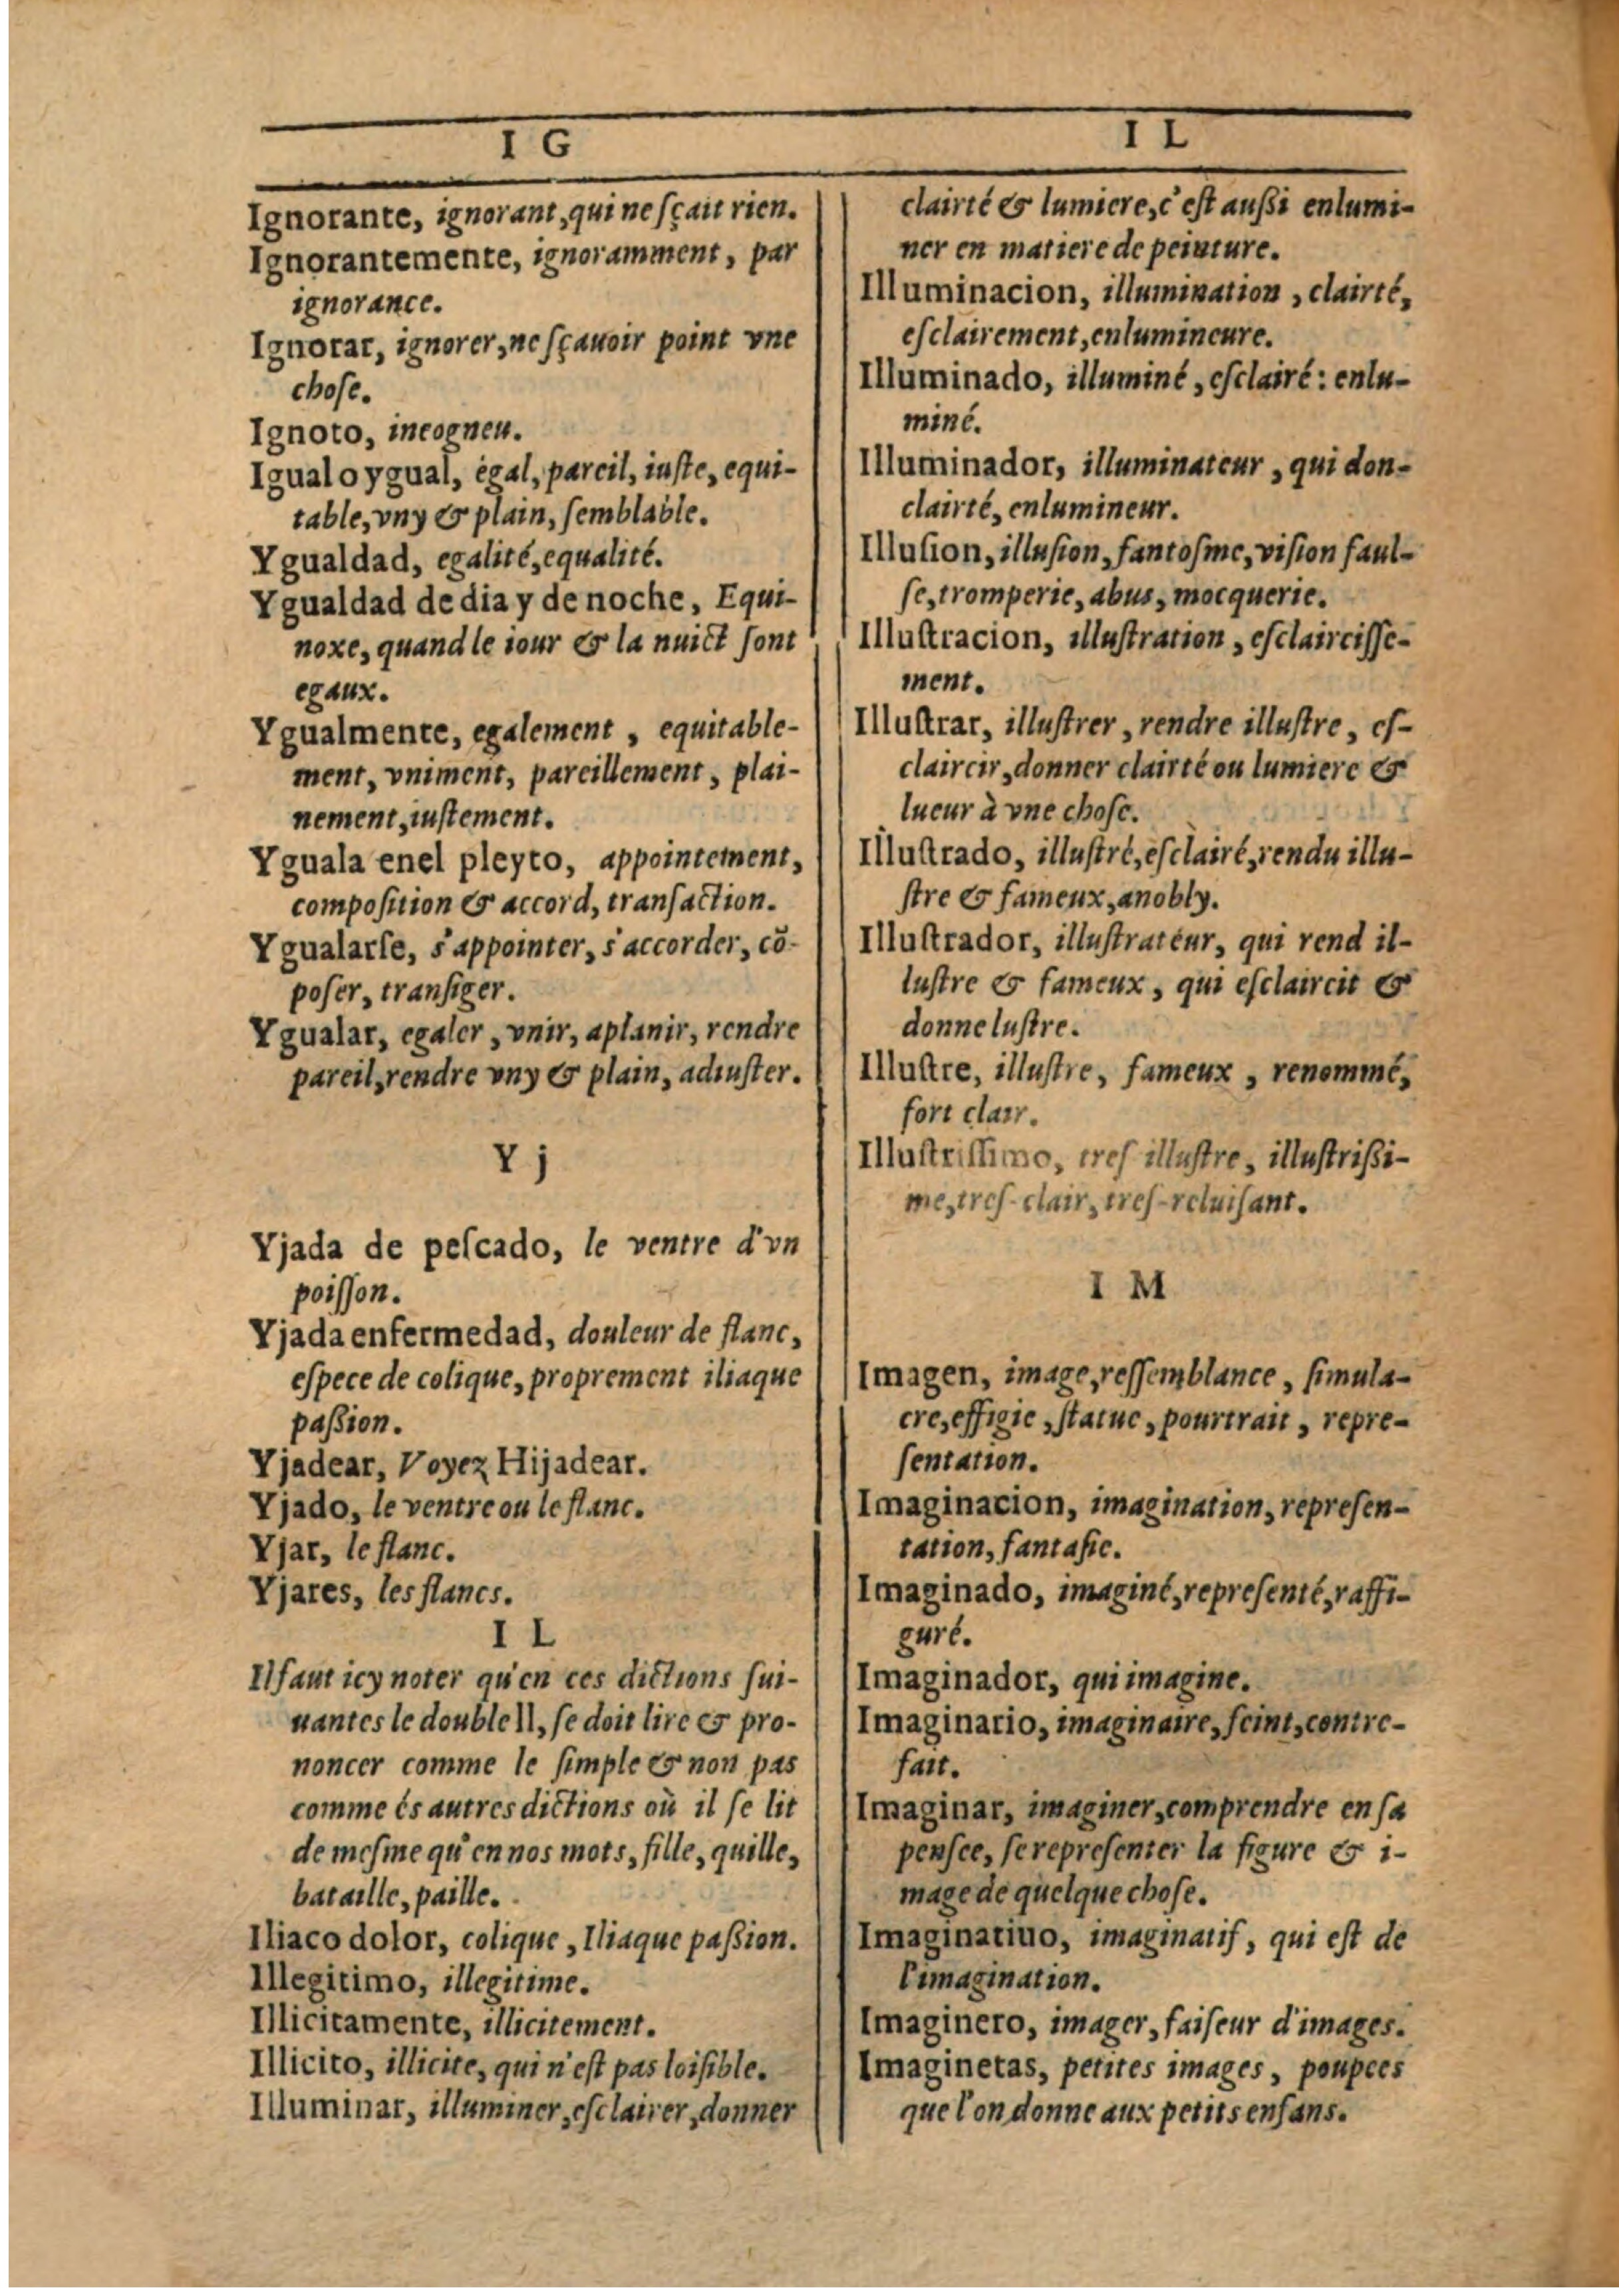 I G
Ignorante, ignorant, qui ne sçait rien.
Ignorantemente, ignoramment, par
ignorance.
Ignorar, ignorer, ne sçauoir point vne
chose.
Ignoto, incogneu.
Igual o ygual, égal, pareil, iuste, equi-
table, vny & plain, semblable.
Ygualdad, egalité, equalité.
Ygualdad de dia y de noche, Equi-
noxe, quand le iour & la nuict sont
egaux.
Ygualmente, egalement, equitable-
ment, vniment, pareillement, plai-
nement, iustement.
Yguala en el pleyto, appointement,
composition & accord, transaction.
Ygualarse, s'appointer, s'accorder, cõ-
poser, transiger.
Ygualar, egaler, vnir, aplanir, rendre
pareil, rendre vny & plain, adiuster.
Y j
Yjada de pescado, le ventre d'vn
poisson.
Yjada enfermedad, douleur de flanc,
espece de colique, proprement iliaque
passion.
Yjadear, Voyez Hijadear.
Yjado, le ventre ou le flanc.
Yjar, le flanc.
Yjares, les flancs.
I L
Il faut icy noter qu'en ces dictions sui-
uantes le double ll, se doit lire & pro-
noncer comme le simple & non pas
comme és autres dictions où il se lit
de mesme qu'en nos mots, fille, quille,
bataille, paille.
Iliaco dolor, colique, Iliaque passion.
Illegitimo, illegitime.
Illicitamente, illicitement.
Illicito, illicite, qui n'est pas loisible.
Illuminar, illuminer, esclairer, donner
I L
clairté & lumiere, c'est aussi enlumi-
ner en matiere de peinture.
Illuminacion, illumination, clairté,
esclairement, enlumineure.
Illuminado, illuminé, esclairé: enlu-
miné.
Illuminador, illuminateur, qui don-
clairté, enlumineur.
Illusion, illusion, fantosme, vision faul-
se, tromperie, abus, mocquerie.
Illustracion, illustration, esclaircisse-
ment.
Illustrar, illustrer, rendre illustre, es-
claircir, donner clairté ou lumiere &
lueur à vne chose.
Illustrado, illustré, esclairé, rendu illu-
stre & fameux, anobly.
Illustrador, illustrateur, qui rend il-
lustre & fameux, qui esclaircit &
donne lustre.
Illustre, illustre, fameux, renommé,
fort clair.
Illustrissimo, tres illustre, illustrissi-
me, tres-clair, tres-reluisant.
I M
Imagen, image, ressemblance, simula-
cre, effigie, statue, pourtrait, repre-
sentation.
Imaginacion, imagination, represen-
tation, fantasie.
Imaginado, imaginé, representé, raffi-
guré.
Imaginador, qui imagine.
Imaginario, imaginaire, feint, contre-
fait.
Imaginar, imaginer, comprendre en sa
pensee, se representer la figure & i-
mage de quelque chose.
Imaginatiuo, imaginatif, qui est de
l'imagination.
Imaginero, imager, faiseur d'images.
Imaginetas, petites images, poupees
que l'on donne aux petits enfans.